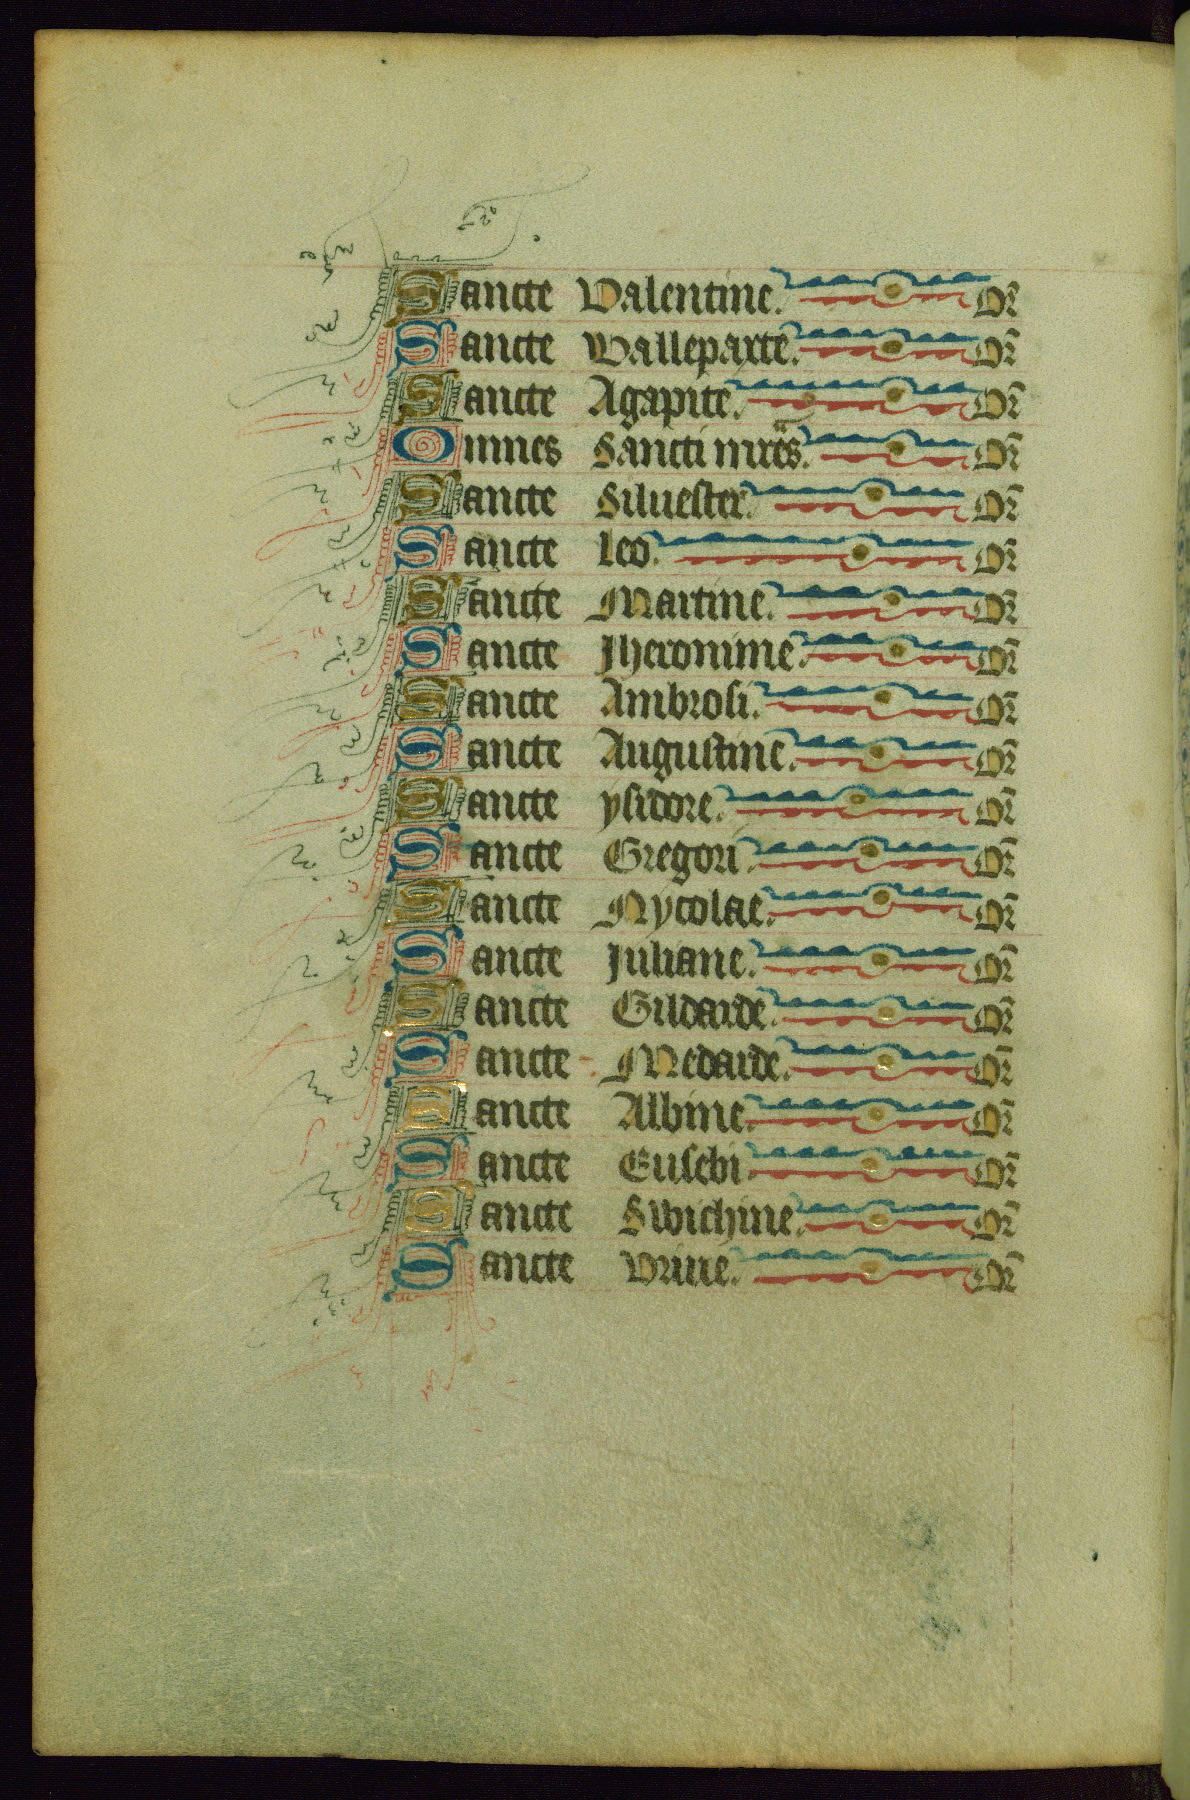 Sancte Valentine. Or̄
Sancte Wallepaxte. Or̄
Sancte Agapite. Or̄
Omnes Sancti mr̄es. Or̄
Sancte Siluester. Or̄
Sancte Leo. Or̄
Sancte Martine. Or̄
Sancte Jheronime. Or̄
Sancte Ambrosi. Or̄
Sancte Augustine. Or̄
Sancte ysidore. Or̄
Sancte Gregori. Or̄
Sancte Nycolae. Or̄
Sancte Juliane. Or̄
Sancte Gildarde. Or̄
Sancte Medarde. Or̄
Sancte Albine. Or̄
Sancte Eusebi. Or̄
Sancte Swichine. Or̄
Sancte Or̄